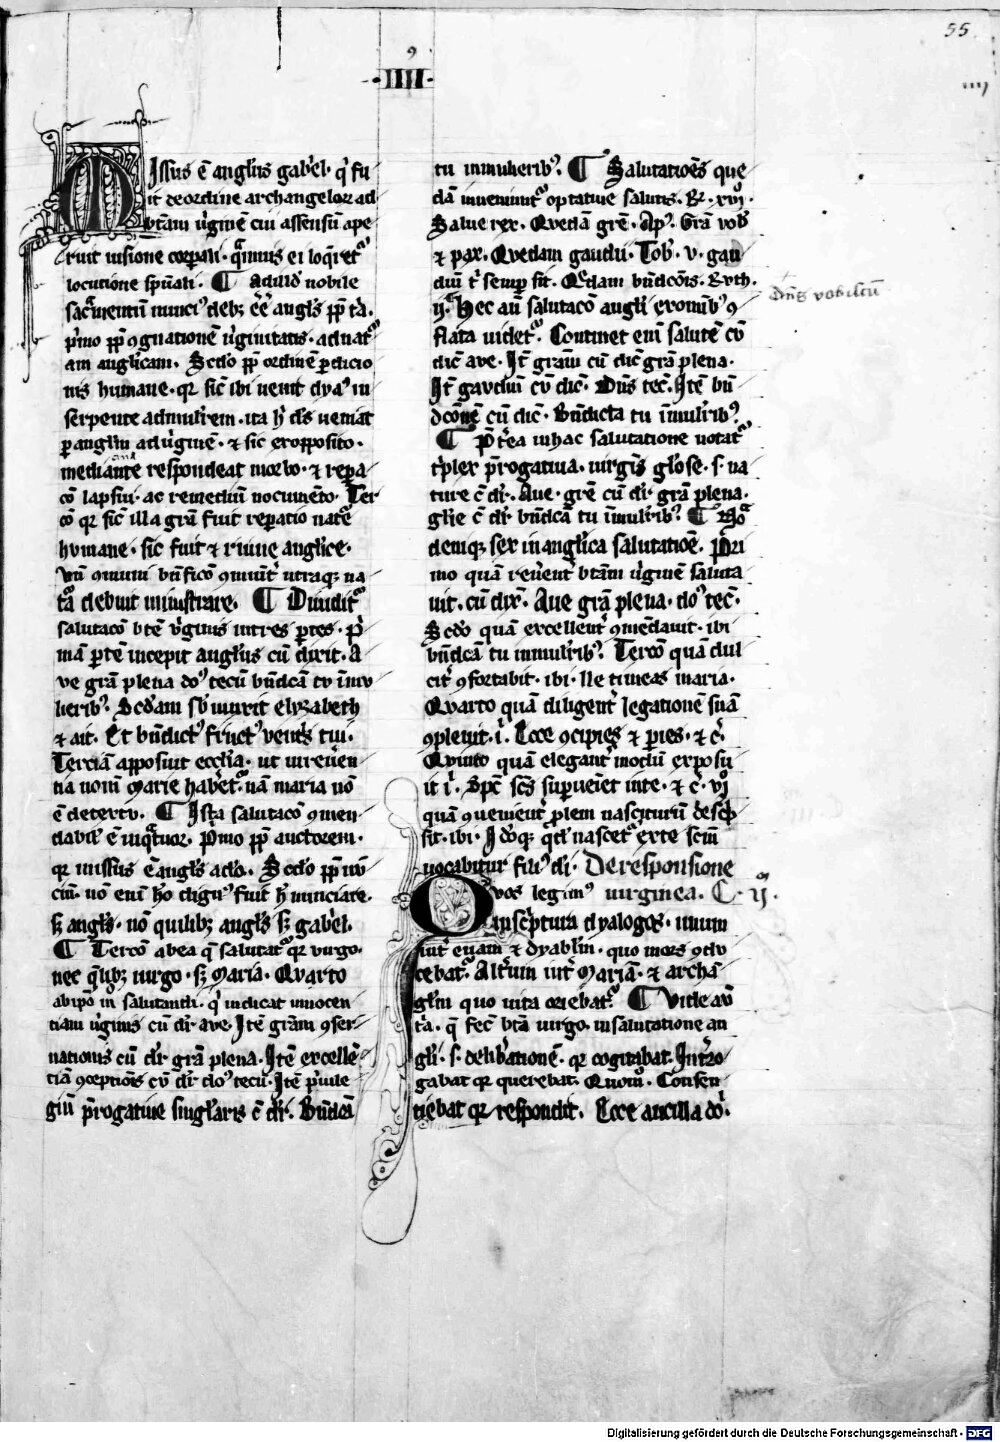 55
·IIII·
Missus ē angl̓us gab̓el· q̓ fu
it de ordine archangelor ad
btām v̓ginē cui assensū ape
ruit visione corporali· qͣtinus ei loq̓retͬ
locutione spūali· ¶ Ad illd̓ nobile
sacͣmentū nunciꝰ debꝫ eē̓ angl̓s pp̄ t̓a·
p̓mo pp̄ ꝯgnationē v̓ginitatis· ad natͬ
am anglicam· Scd̓o pp̄ ordinē ꝑdicio
nis humane· qr sic̄ ibi venit dyaꝰ in
serpente ad mulierem· ita h̓ dꝰs veniat
ꝑ anglm̄ ad v̓ginē· ⁊ sic ex opposito·
mediante respondeat morbo· ⁊ repa
cō lapsui· ac remediū nocumēto· Ter
cō qr sic̄ illa grā fuit reꝑatio natͤ
humane· sic fuit ⁊ ruine anglice·
Vn̄ ꝯmuni bn̄ficō ꝯmunit̓ utraqꝫ na
tͣa debuit ministrare· ¶ Diuiditͬ
salutacō bt̄e v̓ginis in tres ꝑtes· p̓
mā ꝑtē incepit angl̓us cū dixit· A
ve grā plena doꝰ tecū bn̄dcā tu ī mu
lieribꝰ· Scd̓am sb̓iunxit elyzabeth
⁊ ait· Et bn̄dictꝰ fructꝰ ventˢ tui·
Terciā apposuit ecclīa· ut reuerēn
tia nomī marie hab̓etͬ· nā maria nō
ē de textu· ¶ Ista salutacō ꝯmen
dabil̓ ē in qͣtuor· P̓mo pp̄ auctorem·
qr missus ē angl̓s a do· Scd̓o pp̄ nū
ciū· nō enī hō dignꝰ fuit h̓ nunciare·
sꝫ angl̓s· nō quilibꝫ angl̓s sꝫ gab̓el·
¶ Tercō ab ea q̄ salutatͬ qr virgo·
nec q̄libꝫ virgo· sꝫ Maria· Quarto
ab ipō mͦ salutandi· q̓ indicat innocen
tiam v̓ginis cū dr̄ ave· Itē grām ꝯfer
nationis cū dr̄ grā plena· Itē excellē
tiā ꝯceptiōis cū dr̄ doꝰ tecū· Itē p̓uile
giū p̄rogatiue singl̓aris c̄ dr̄· Bn̄dcā
tu in mulieribꝰ· ¶ Salutatiōes que
dā inueniuntͬ optatiue salutis· Rͦ· xvj·
Salue rex· Quedā grē· Apꝰ· Grā vob̓
⁊ pax· Quedam gaudii· Tob̓· v· gau
diū t̓ semper sit· Qedam bn̄dcōis· Ruth·
ij· Hec aū salutacō angli ex omībꝰ ꝯ
flata videtͬ· Continet enī salutē cū
dic̄ ave· It̄ grām cū dic̄ grā plena·
It̄ gaudiū cū dic̄· Dn̄s tec̄· Itē bn̄
dcōnē cū dic̄· Bn̄dicta tu ī mul̓ribꝰ·
¶ P̄t̓ea in hac salutatione notatͬ
t̓plex p̄rogatiua· virgīs gl̓ose· s· na
ture c̄ dr̄· Aue· grē cū dr̄ grā plena·
glīe c̄ dr̄ bn̄dcā tu ī mul̓ribꝰ· ¶ Noͣ
demqꝫ sex in anglica salutatiōe· P̓ri
mo quā reuerent̓ btām v̓ginē saluta
uit· cū dix̄· Aue grā plena· doꝰ tec̄·
Scd̓o quā excellent̓ ꝯmēdauit· ibi
bn̄dcā tu in mul̓ribꝰ· Tercō quā dul
cit̓ ꝯfortabit· ibi· Ne timeas maria·
Quarto quā diligent̓ legationē suā
ꝯpleuit· i̓· Ecce ꝯcipies ⁊ paries· ⁊ c̓·
Quinto quā elegant̓ modū exposu
it i̓· Spc̄ sc̄s superueniet in te· ⁊ c̓· vjͦ
quā ꝯuenient̓ plem nascituri descp̓
sit· ibi· Ideoqꝫ qd̓ nascetͬ ex te scm̄
vocabitur filiꝰ di· De responsione
virginea· C· ij·
Dvos legimꝰ
in sc̓ptura dyalogos· unum
int̓ euam ⁊ dyabl̓m· quo mors ꝯdu
cebatͬ· Alt̓um int̓ Mariā· ⁊ archā
gl̓m quo vita oriebatͬ· ¶ Vide aū
t̓a· q̄ fec̄ btā virgo· in salutatione an
gl̓i· s· delib̓ationē· qr cogitabat· Int̓ro
gabat qr querebat· Quomͦ· Consen
tiebat qr respondit· Ecce ancilla do̓·
Dn̄s vobiscū
Digitalisierung gefördert durch die Deutsche Forschungsgemeinschaft - DFG